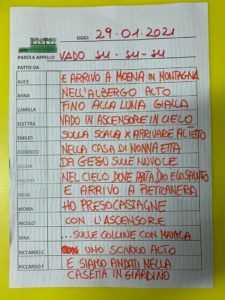 OGGI: 29.01.2021
PAROLA APPELLO VADO SU - SU - SU
FATTO DA
ALICE E ARRIVO A MOENA IN MONTAGNA
ANNA NELL'ALBERGO ALTO
CAMILLA FINO ALLA LUNA GIALLA
ELETTRA VADO IN ASCENSORE IN CIELO
EMILIO SULLA SCALA X ARRIVARE AL TETTO
FEDERICO NELLA CASA DI NONNA ETTA
GIULIA DA GESÙ SULLE NUVOLE
NEL CIELO DOVE ABITA DIO E LO SALUTO
IRENE E ARRIVO A PIETRANERA
MOIRA HO PRESO CASTAGNE
NICOLO' CON L'ASCENSORE
NINA ...SULLE COLLINE CON
RICCARDO C UNO SCIVOLO ALTO
RICCARDO F E SIAMO ANDATI NELLA
CASETTA IN GIARDINO